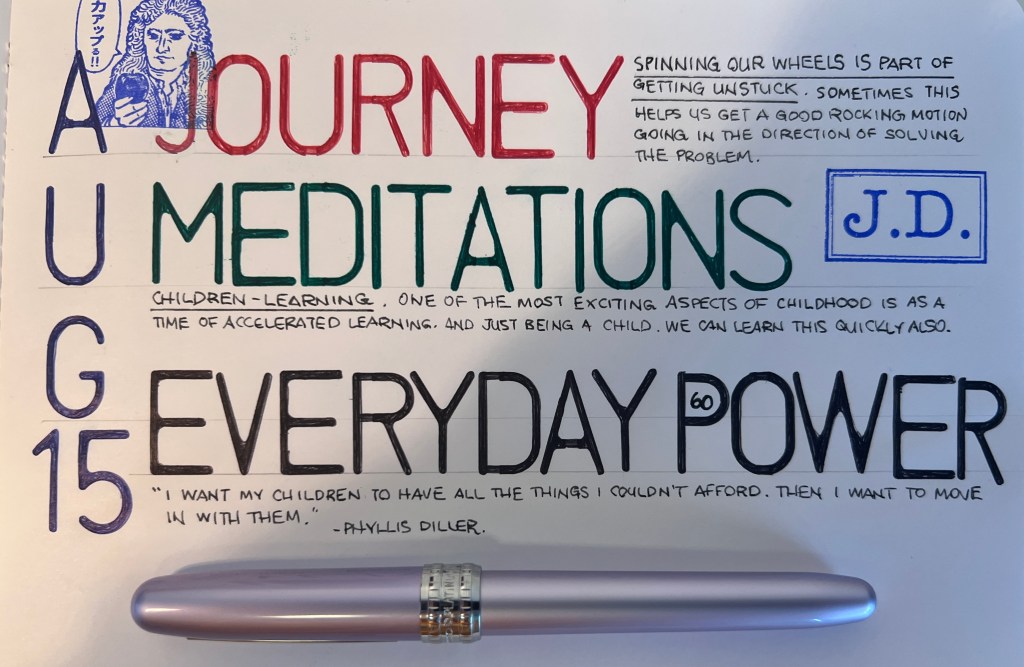 力アップる!!
A
U
G
15
JOURNEY
SPINNING OUR WHEELS IS PART OF
GETTING UNSTUCK. SOMETIMES THIS
HELPS US GET A GOOD ROCKING MOTION
GOING IN THE DIRECTION OF SOLVING
THE PROBLEM.
MEDITATIONS
J.D.
CHILDREN-LEARNING. ONE OF THE MOST EXCITING ASPECTS OF CHILDHOOD IS AS A
TIME OF ACCELERATED LEARNING. AND JUST BEING A CHILD. WE CAN LEARN THIS QUICKLY ALSO.
EVERYDAY POWER
60
"I WANT MY CHILDREN TO HAVE ALL THE THINGS I COULDN'T AFFORD. THEN I WANT TO MOVE
IN WITH THEM."
-PHYLLIS DILLER.